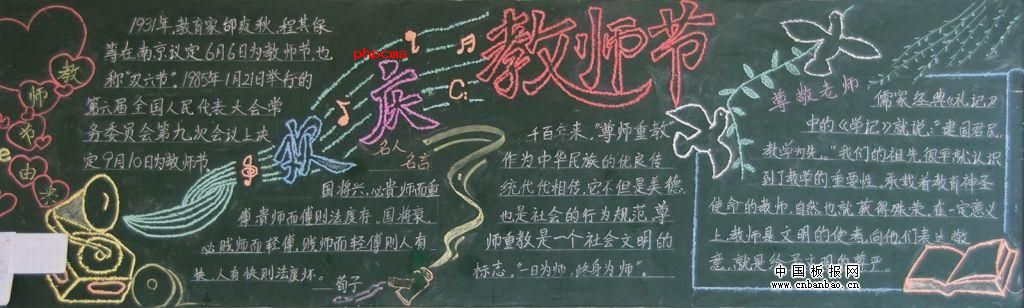 教
师
节
由
来
1931年,教育家邰爽秋、程其保
等在南京议定6月6日为教师节,也
称"双六节"。1985年1月21日举行的
第六届全国人民代表大会常
务委员会第九次会议上决
定9月10日为教师节。
phpcms
欢庆
教师节
名人
名言
国将兴,必贵师而重
傅,贵师而傅则法度存。国将衰,
必贱师而轻傅,贱师而轻傅则人有
快,人有快则法度坏。
荀子
千百年来,"尊师重教"
作为中华民族的优良传
统代代相传,它不但是美德,
也是社会的行为规范。尊
师重教是一个社会文明的
标志。"一日为师,终身为师"。
尊敬老师
儒家经典《礼记》
中的《学记》就说:"建国君民,
教学为先。"我们的祖先很早就认识
到了教学的重要性。承载着教育神圣
使命的教师,自然也就获得殊荣。在一定意义
上,教师是文明的使者,向他们表出敬
意,就是给予文明的尊严。
中国板报网
www.cnbanbao.cn